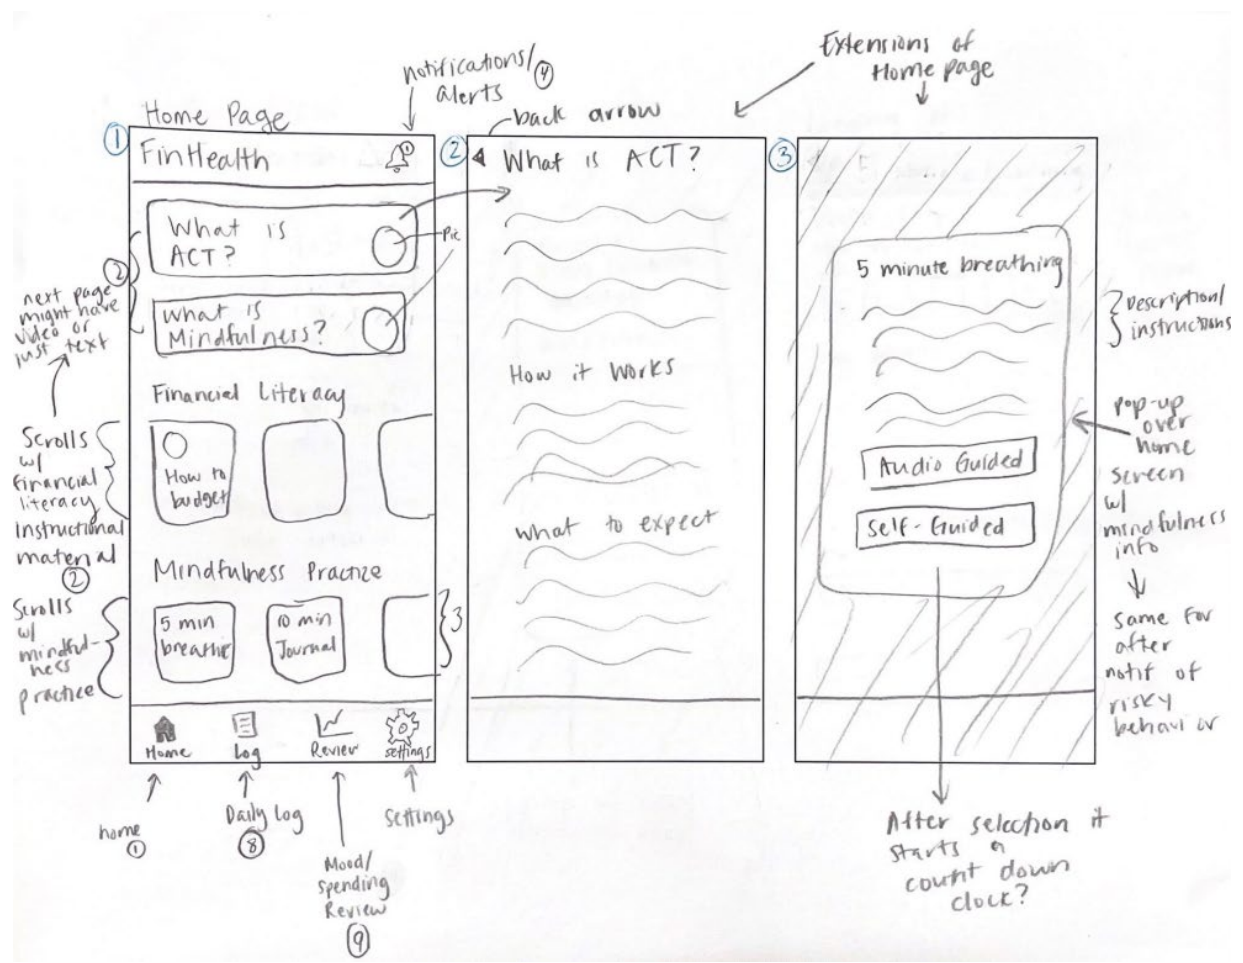 Extensions of
Home page
notifications/
alerts
4
back arrow
Home Page
1
FinHealth
What is
ACT?
pic
What is
Mindfulness?
2
next page
might have
video or
just text
Financial Literacy
How to
budget
Scrolls
w/
financial
literacy
instructional
material
2
Mindfulness Practice
5 min
breathe
10 min
Journal
3
Scrolls
w/
mindful-
ness
practice
Home
Log
Review
settings
home
1
Daily Log
8
Mood/
spending
Review
9
Settings
2
What is ACT?
How it works
What to expect
3
5 minute breathing
Audio Guided
Self-Guided
Description/
instructions
pop-up
over
home
screen
w/
mindfulness
info
same for
after
notif of
risky
behavior
After selection it
starts a
count down
clock?